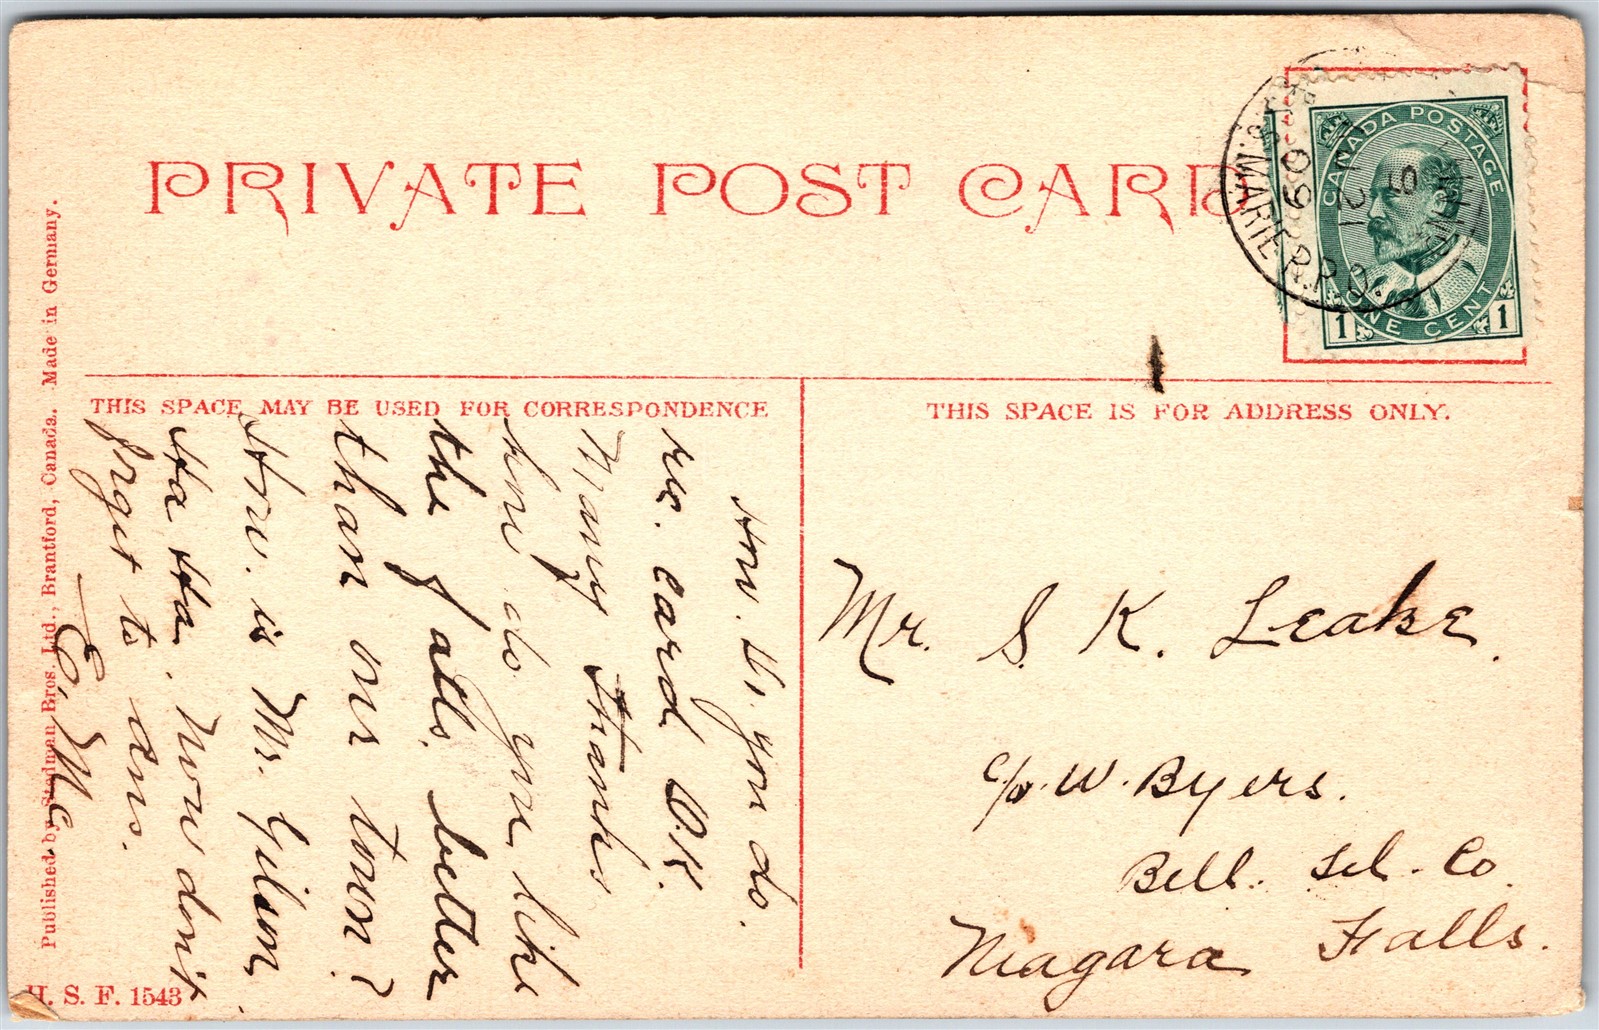 PRIVATE POST CARD
CANADA POSTAGE
ONE CENT
1 1
S. MARIE R.P.O.
09
21
THIS SPACE MAY BE USED FOR CORRESPONDENCE
THIS SPACE IS FOR ADDRESS ONLY.
How. Di. you do.
rec. card O.K.
Many thanks
how do you like
the falls. better
than our town?
How. is Mr. Gilson
Ha Ha. Now dont
forget to ans.
E. Mc.
Mr. S. K. Leake.
c/o. W. Byers.
Bell. Tel. Co.
Niagara Falls.
Published by Stedman Bros. Ltd., Brantford, Canada. Made in Germany.
H. S. F. 1543